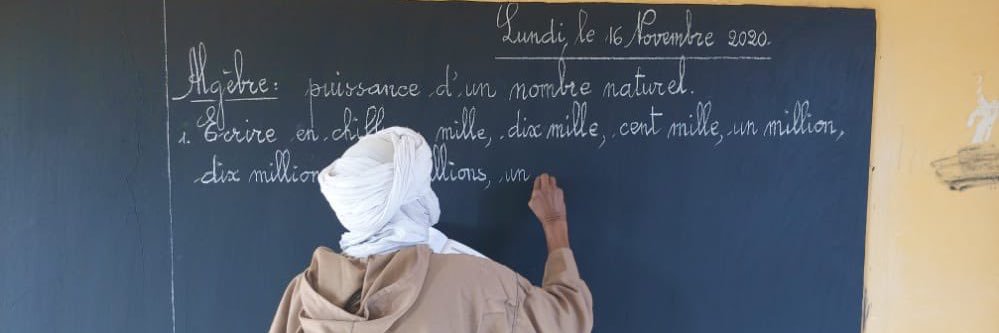 Lundi, le 16 Novembre 2020.
Algèbre: puissance d'un nombre naturel.
1. Ecrire en mille, dix mille, cent mille, un million,
dix million un